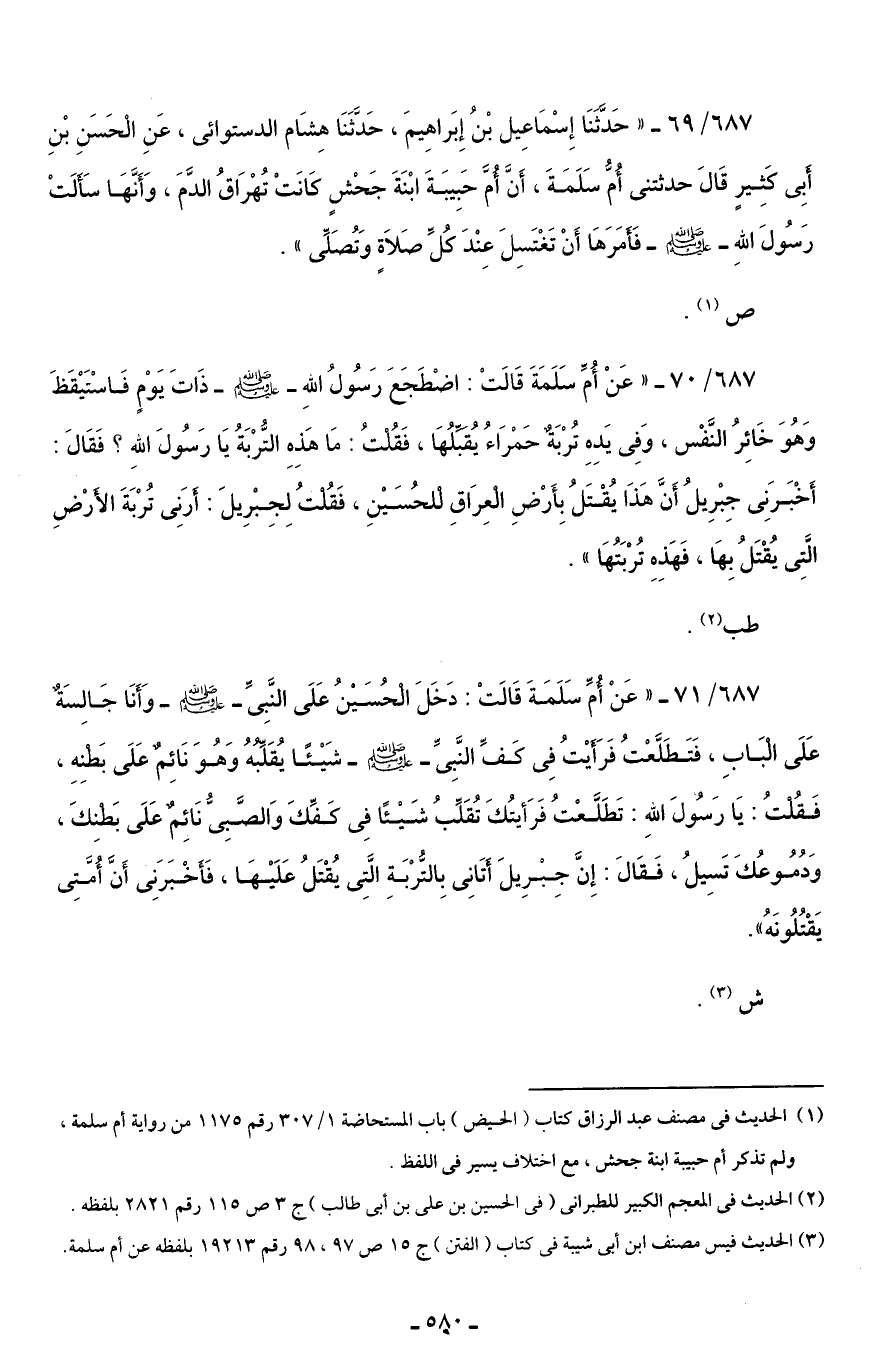 ٦٨٧/ ٦٩ ـ « حَدَّثَنَا إِسْمَاعِيل بْنُ إِبَراهِيمَ ، حَدَّثَنَا هِشَام الدستوائى ، عَنِ الْحَسَنِ بْنِ
أَبِى كَثِيرٍ قَالَ حدثتنى أُمُّ سَلَمَةَ ، أَنَّ أُمَّ حَبِيبَةَ ابْنَةَ جَحْشٍ كَانَتْ تُهْرَاقُ الدَّمَ ، وَأَنَّهَا سَأَلَتْ
رَسُولَ اللهِ ـ ﷺ ـ فَأَمَرَهَا أَنْ تَغْتَسِلَ عِنْدَ كُلِّ صَلاَةٍ وَتُصَلِّى » .
ص (١) .
٦٨٧/ ٧٠ ـ « عَنْ أُمِّ سَلَمَةَ قَالَتْ : اضْطَجَعَ رَسُولُ اللهِ ـ ﷺ ـ ذَاتَ يَوْمٍ فَاسْتَيْقَظَ
وَهُوَ خَائِرُ النَّفْسِ ، وَفِى يَدِهِ تُرْبَةٌ حَمْرَاءُ يُقَبِّلُهَا ، فَقُلْتُ : مَا هَذِهِ التُّرْبَةُ يَا رَسُولَ اللهِ ؟ فَقَالَ :
أَخْبَرَنِى جِبْرِيلُ أَنَّ هَذَا يُقْتَلُ بِأَرْضِ الْعِرَاقِ لْلحُسَيْنِ ، فَقُلْتُ لِجِبْرِيلَ : أَرَنِى تُرْبَةَ الأَرْضِ
الَّتِى يُقْتَلُ بِهَا ، فَهَذِهِ تُرْبَتُهَا » .
طب(٢) .
٦٨٧/ ٧١ ـ « عَنْ أُمِّ سَلَمَةَ قَالَتْ : دَخَلَ الْحُسَيْنُ عَلَى النَّبِىِّ ـ ﷺ ـ وَأَنَا جَالِسَةٌ
عَلَى الْبَابِ ، فَتَطَلَّعْتُ فَرَأَيْتُ فِى كَفِّ النَّبِىِّ ـ ﷺ ـ شَيْئًا يُقَلِّبُهُ وَهُوَ نَائِمٌ عَلَى بَطْنِهِ ،
فَقُلْتُ : يَا رَسُولَ اللهِ : تَطَلَّعْتُ فَرَأَيتُكَ تُقَلِّبُ شَيْئًا فِى كَفِّكَ وَالصَّبِىُّ نَائِمٌ عَلَى بَطْنِكَ ،
وَدُمُوعُكَ تَسِيلُ ، فَقَالَ : إِنَّ جِبْرِيلَ أَتَانِى بِالتُّرْبَةِ الَّتِى يُقْتَلُ عَلَيْهَا ، فَأَخْبَرَنِى أَنَّ أُمَّتِى
يَقْتُلُونَهُ».
ش (٣) .
(١) الحديث فى مصنف عبد الرزاق كتاب ( الحيض ) باب المستحاضة ١/ ٣٠٧ رقم ١١٧٥ من رواية أم سلمة ،
ولم تذكر أم حبيبة ابنة جحش ، مع اختلاف يسير فى اللفظ .
(٢) الحديث فى المعجم الكبير للطبرانى ( فى الحسين بن على بن أبى طالب ) ج ٣ ص ١١٥ رقم ٢٨٢١ بلفظه .
(٣) الحديث فيس مصنف ابن أبى شيبة فى كتاب ( الفتن ) ج ١٥ ص ٩٧ ، ٩٨ رقم ١٩٢١٣ بلفظه عن أم سلمة.
ـ ٥٨٠ ـ